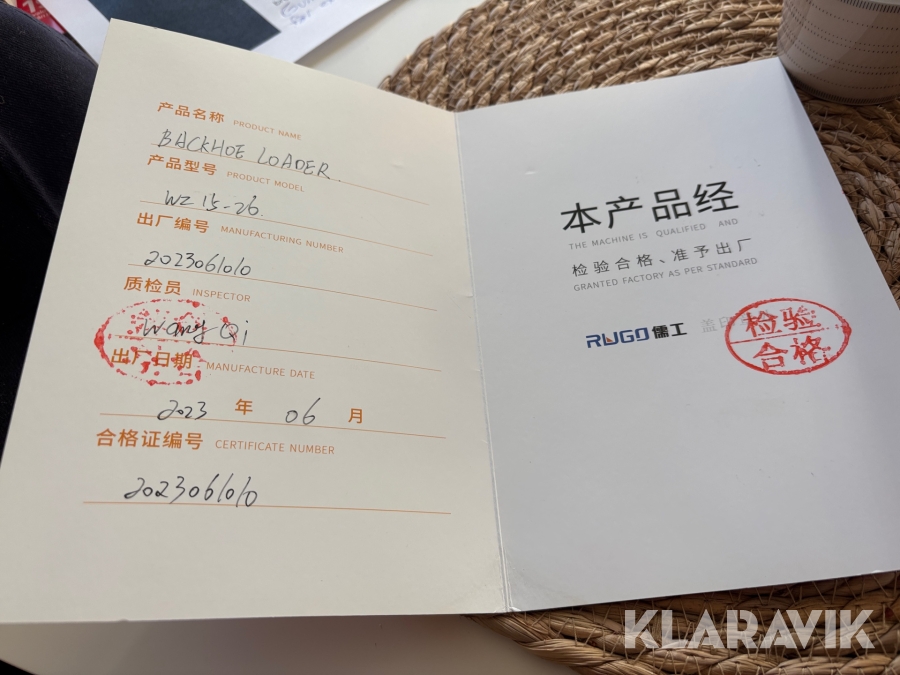 产品名称 PRODUCT NAME
BACKHOE LOADER.
产品型号 PRODUCT MODEL
WZ 15-26.
出厂编号 MANUFACTURING NUMBER
2023061010
质检员 INSPECTOR
Wang Qi
出厂日期 MANUFACTURE DATE
2023 年 06 月
合格证编号 CERTIFICATE NUMBER
2023061010
本产品经
THE MACHINE IS QUALIFIED AND
检验合格、准予出厂
GRANTED FACTORY AS PER STANDARD
RUGO 儒工 盖印
检验
合格
KLARAVIK